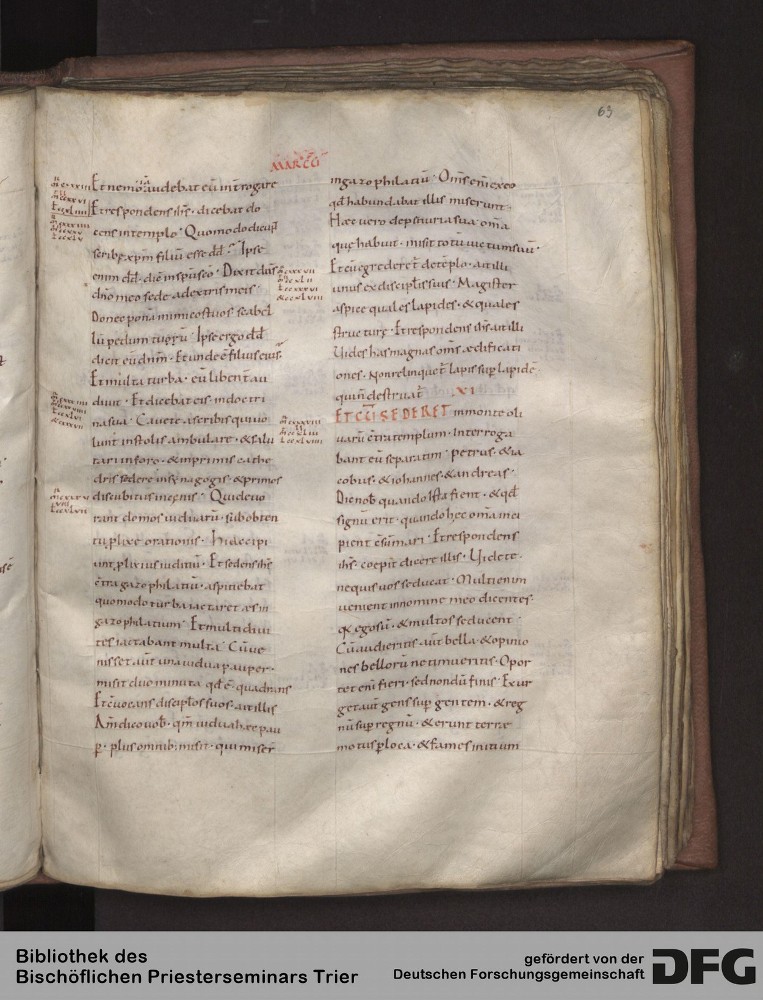 63
MARCUS
Et nemo iam audebat eū int̄rogare
Et respondens ih̄s · dicebat do
cens in templo · Quomodo dicunt
scribę xp̄m filiū esse dd̄ · Ipse
enim dd̄ · dic̄ in spū sc̄o · Dixit dn̄s
dn̄o meo sede a dextris meis ·
Donec ponā inimicos tuos scabel
lū pedum tuorū · Ipse ergo dd̄
dicit eū dn̄m · Et unde ē filius eius ·
Et multa turba · eū libent̄ au
diuit · Et dicebat eis in doctri
na sua · Cauete a scribis qui uo
lunt in stolis ambulare · & salu
tari in foro · & in primis catho
dris sedere in synagogis · & primos
discubitus in cęnis · Qui deuo
rant domos uiduarū · sub obten
tu plixę orationis · Hi accipi
unt plixius iudiciū · Et sedens ih̄s
c̄tra gazophilatiū · aspiciebat
quomodo turba iactaret aes in
gazophilatium · Et multi diui
tes iactabant multa · Cū ue
nisset aut̄ una uidua pauper ·
misit duo minuta · qd̄ ē quadrans
Et c̄uocans discipl̄os suos · ait illis
Am̄ dico uob̄ · qm̄ uidua haec pau
p · plus omnib; misit · qui miser̄
in gazophilatiū · Oms̄ enī ex eo
qd̄ habundabat illis miserunt ·
Haec uero de pęnuria sua om̄a
quę habuit · misit totū uictum suū ·
Et cū egrederet̄ de tēplo · ait illi
unus ex discipl̄is suis · Magister
aspice quales lapides · & quales
structurę · Et respondens ih̄s ait illi
Uides has magnas om̄s aedificati
ones · Non relinquet̄ lapis sup lapidē
qui n̄ destruat̄ XI
ET CŪ SEDERET in monte oli
uarū c̄tra templum · Interroga
bant eū separatim · petrus · & ia
cobus · & iohannes · & andreas ·
Dic nob̄ quando ista fient · & qd̄
signū erit · quando hęc om̄a inci
pient c̄sūmari · Et respondens
ih̄s · coepit dicere illis · Uidete ·
ne quis uos seducat · Multi enim
uenient in nomine meo dicentes ·
qa ego sū · & multos seducent ·
Cū audieritis aut̄ bella · & opinio
nes bellorū ne timueritis · Opor
tet enī fieri · sed nondū finis · Exur
get aut̄ gens sup gentem · & reg
nū sup regnū · & erunt terrae
motus p loca · & fames initium
Bibliothek des
Bischöflichen Priesterseminars Trier
gefördert von der
Deutschen Forschungsgemeinschaft
DFG